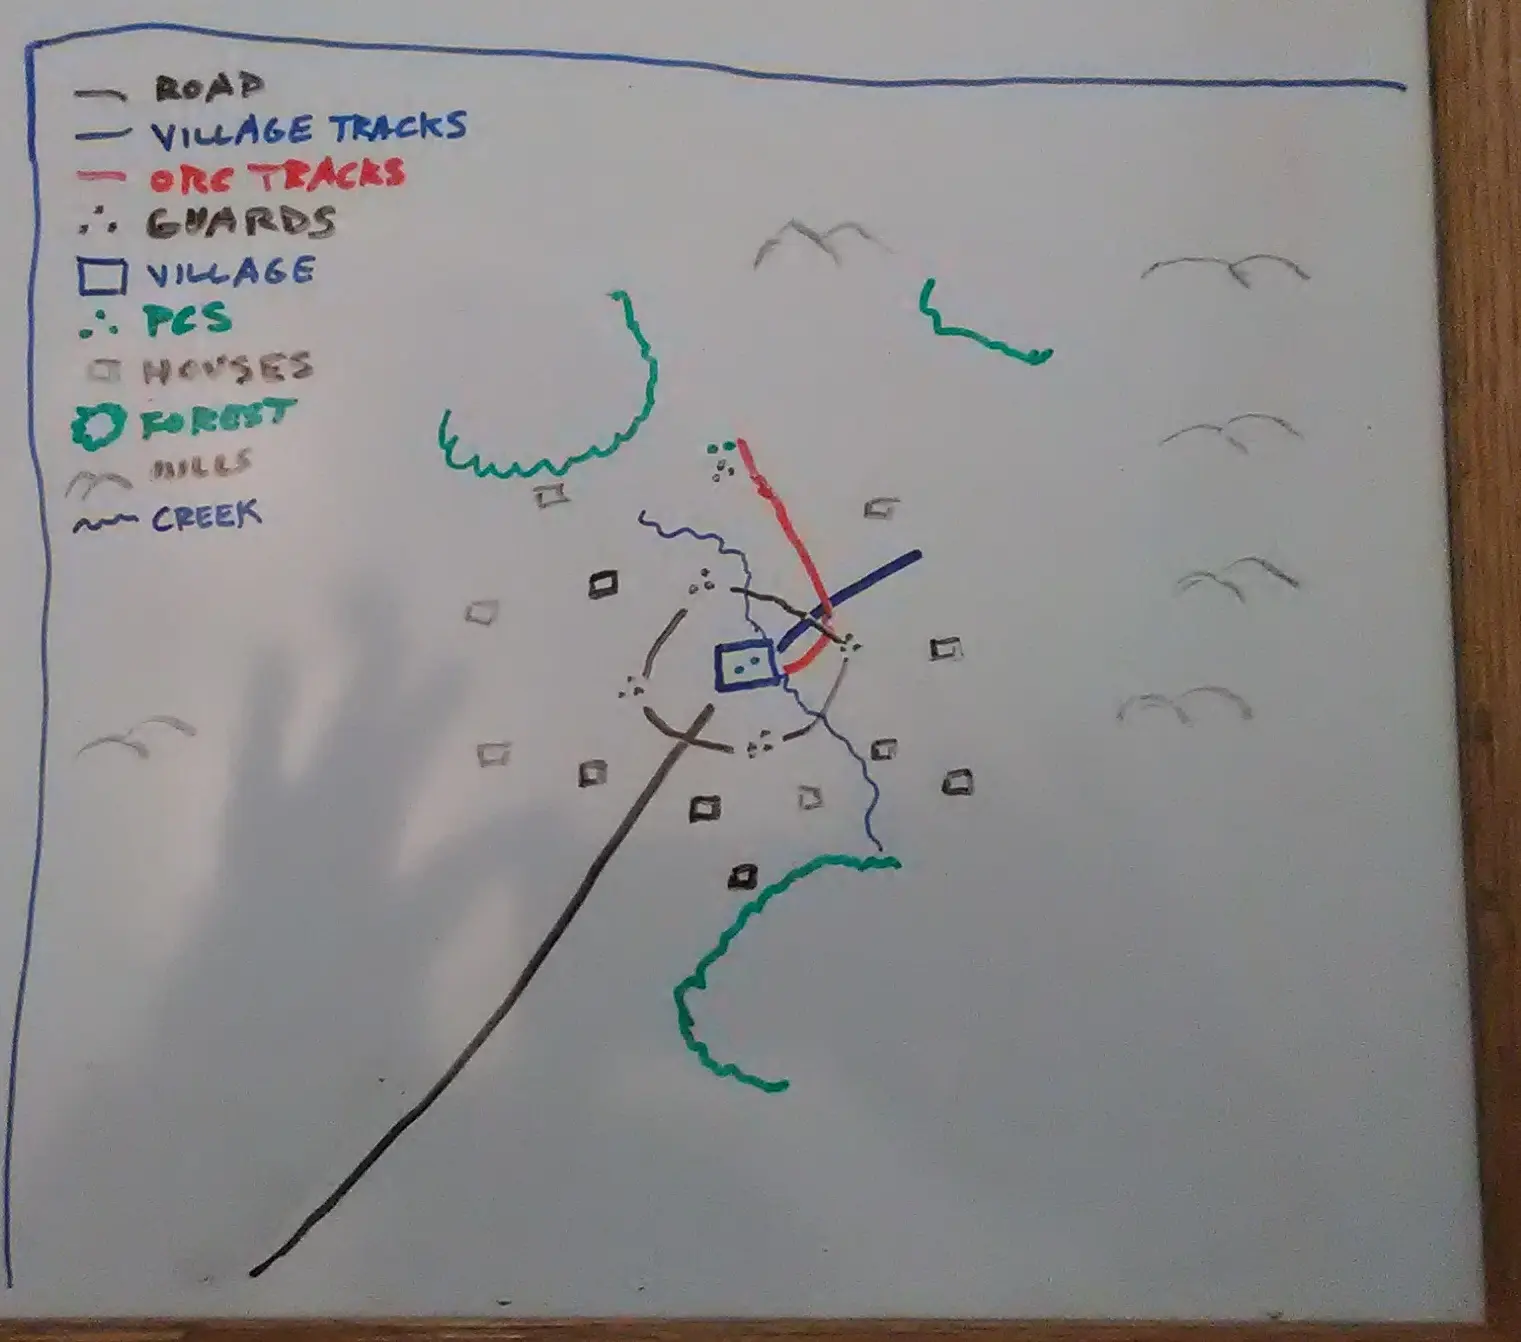 ROAD
VILLAGE TRACKS
ORC TRACKS
GUARDS
VILLAGE
PCS
HOUSES
FOREST
HILLS
CREEK